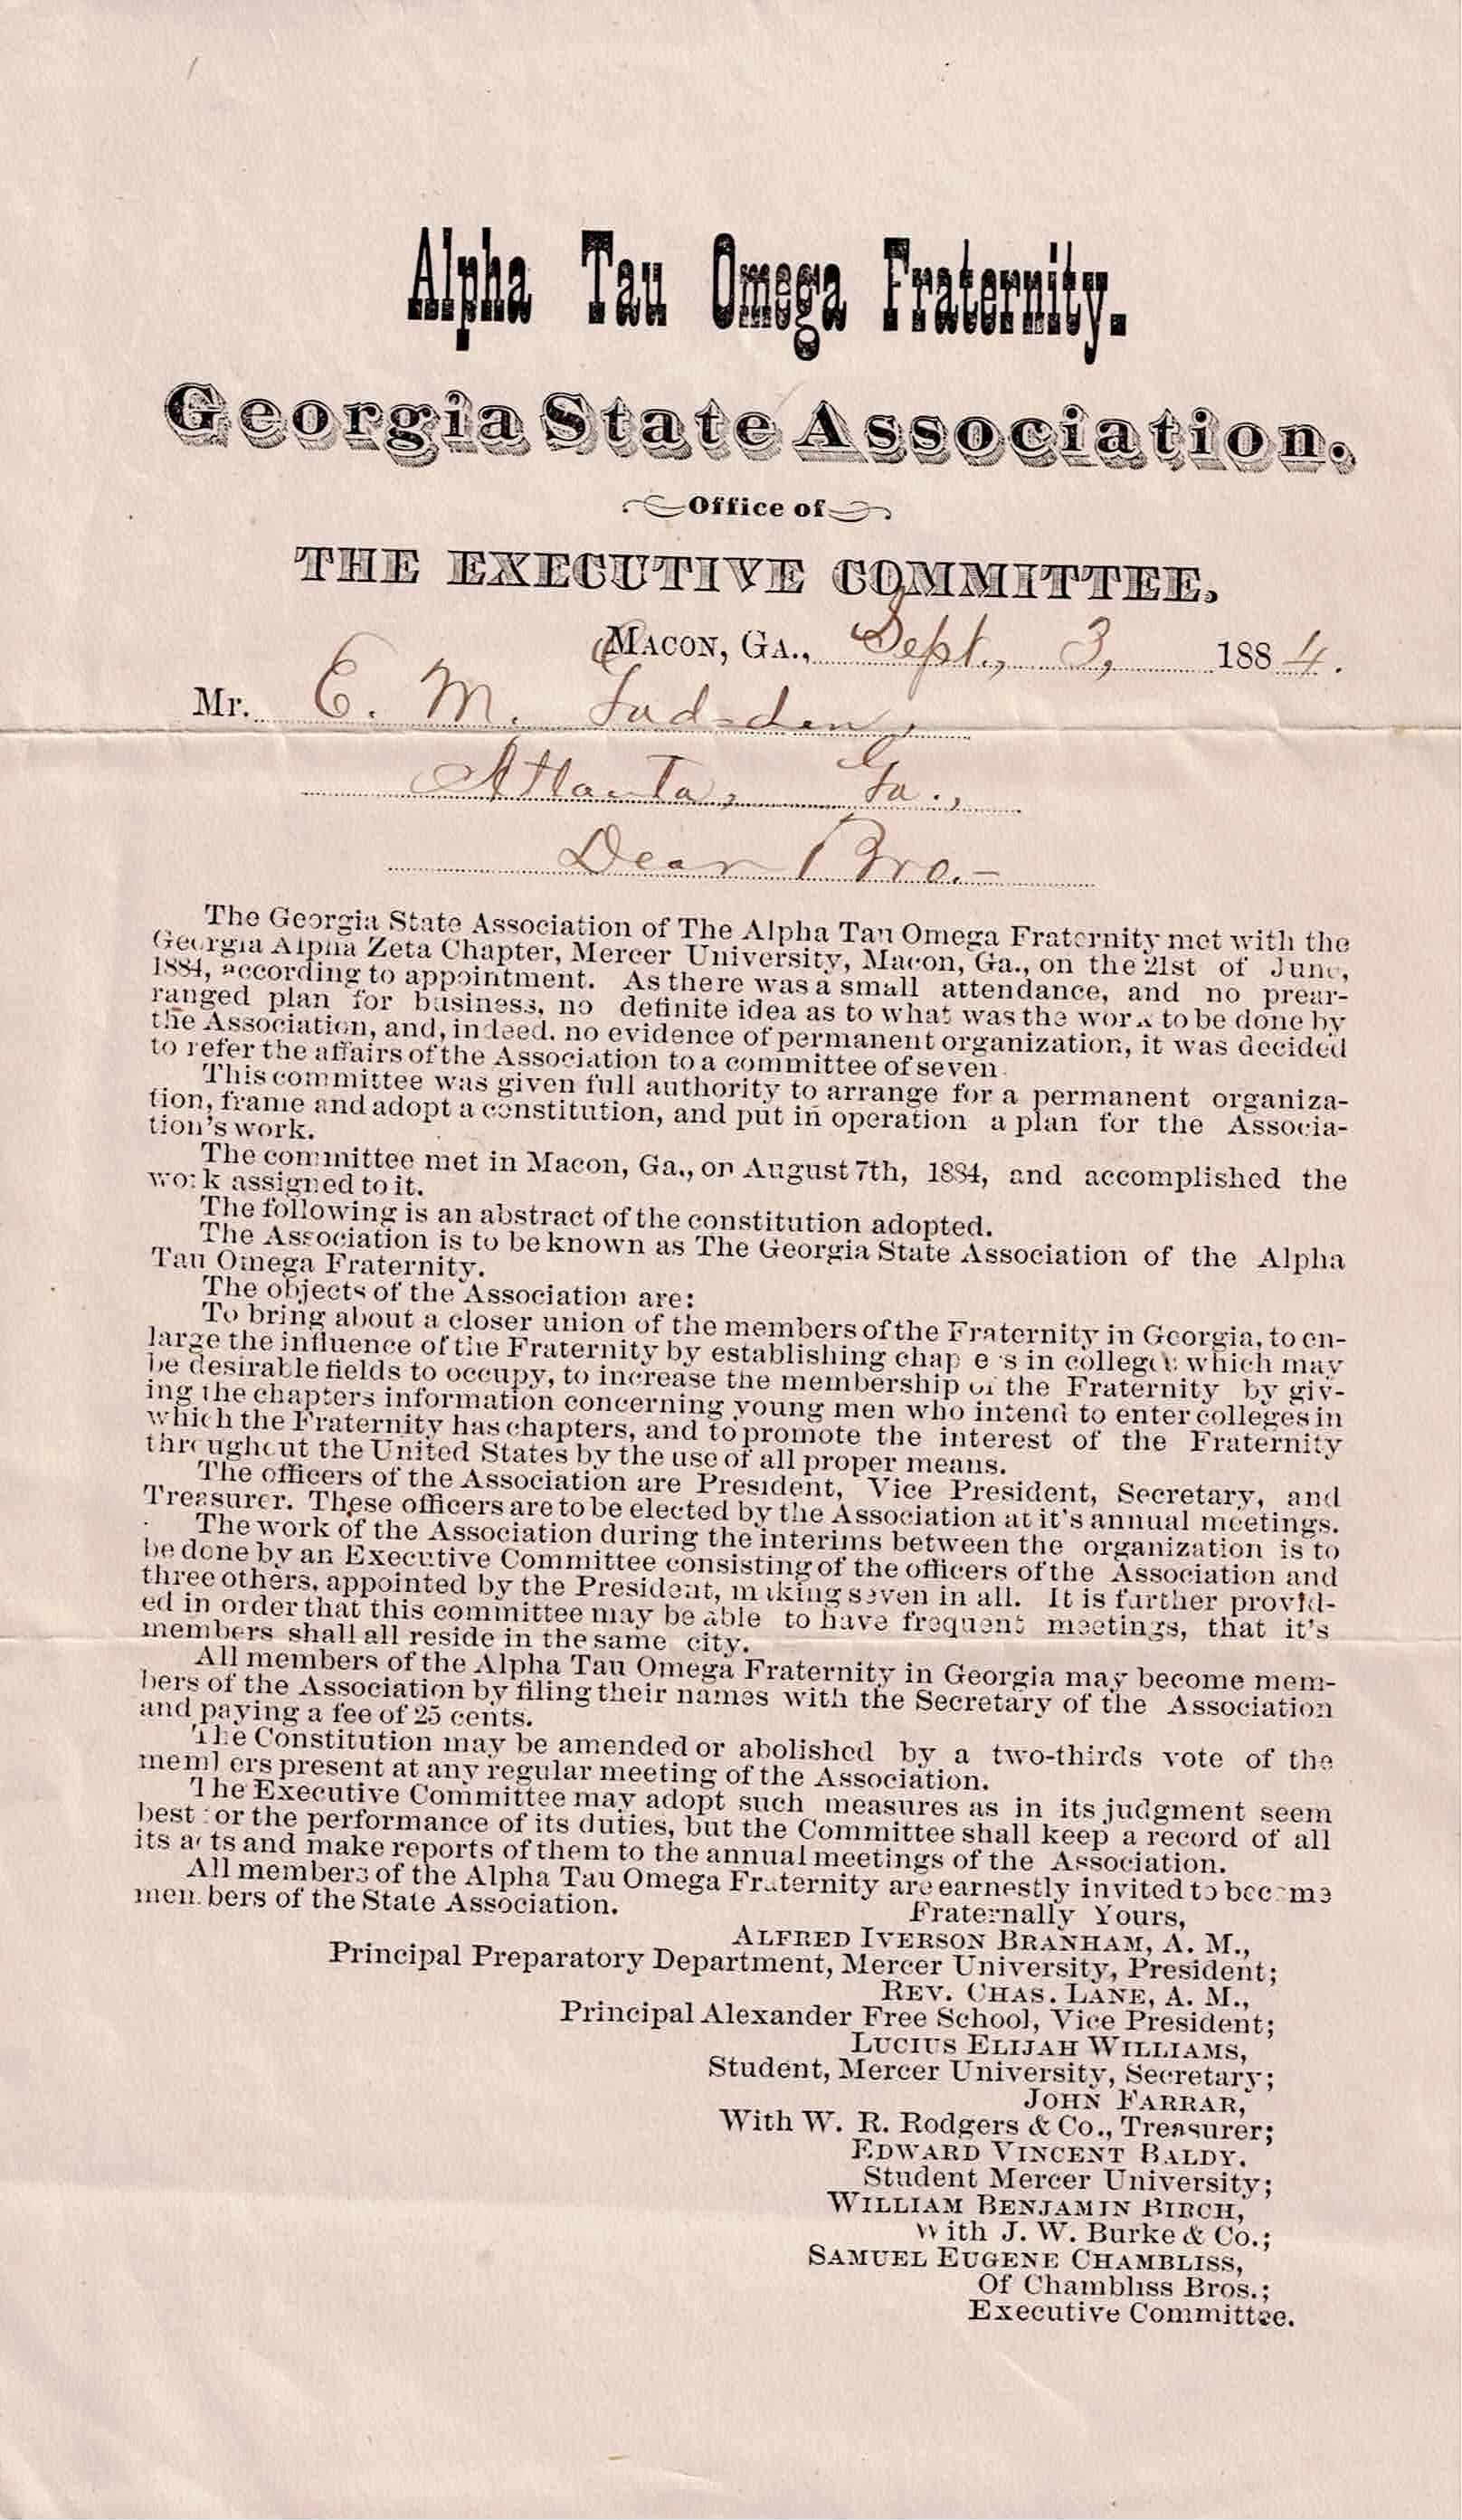 Alpha Tau Omega Fraternity.
Georgia State Association.
Office of
THE EXECUTIVE COMMITTEE,
MACON, GA., Sept., 3, 1884.
Mr. E. M. Gadsden,
Atlanta, Ga.,
Dear Bro.—
The Georgia State Association of The Alpha Tau Omega Fraternity met with the
Georgia Alpha Zeta Chapter, Mercer University, Macon, Ga., on the 21st of June,
1884, according to appointment. As there was a small attendance, and no prear-
ranged plan for business, no definite idea as to what was the work to be done by
the Association, and, indeed, no evidence of permanent organization, it was decided
to refer the affairs of the Association to a committee of seven.
This committee was given full authority to arrange for a permanent organiza-
tion, frame and adopt a constitution, and put in operation a plan for the Associa-
tion's work.
The committee met in Macon, Ga., on August 7th, 1884, and accomplished the
work assigned to it.
The following is an abstract of the constitution adopted.
The Association is to be known as The Georgia State Association of the Alpha
Tau Omega Fraternity.
The objects of the Association are:
To bring about a closer union of the members of the Fraternity in Georgia, to en-
large the influence of the Fraternity by establishing chap e s in colleges which may
be desirable fields to occupy, to increase the membership of the Fraternity by giv-
ing the chapters information concerning young men who intend to enter colleges in
which the Fraternity has chapters, and to promote the interest of the Fraternity
throughout the United States by the use of all proper means.
The officers of the Association are President, Vice President, Secretary, and
Treasurer. These officers are to be elected by the Association at it's annual meetings.
The work of the Association during the interims between the organization is to
be done by an Executive Committee consisting of the officers of the Association and
three others, appointed by the President, making seven in all. It is further provid-
ed in order that this committee may be able to have frequent meetings, that it's
members shall all reside in the same city.
All members of the Alpha Tau Omega Fraternity in Georgia may become mem-
bers of the Association by filing their names with the Secretary of the Association
and paying a fee of 25 cents.
The Constitution may be amended or abolished by a two-thirds vote of the
members present at any regular meeting of the Association.
The Executive Committee may adopt such measures as in its judgment seem
best for the performance of its duties, but the Committee shall keep a record of all
its acts and make reports of them to the annual meetings of the Association.
All members of the Alpha Tau Omega Fraternity are earnestly invited to become
members of the State Association.
Fraternally Yours,
ALFRED IVERSON BRANHAM, A. M.,
Principal Preparatory Department, Mercer University, President;
REV. CHAS. LANE, A. M.,
Principal Alexander Free School, Vice President;
LUCIUS ELIJAH WILLIAMS,
Student, Mercer University, Secretary;
JOHN FARRAR,
With W. R. Rodgers & Co., Treasurer;
EDWARD VINCENT BALDY.
Student Mercer University;
WILLIAM BENJAMIN BIRCH,
With J. W. Burke & Co.;
SAMUEL EUGENE CHAMBLISS,
Of Chambliss Bros.;
Executive Committee.